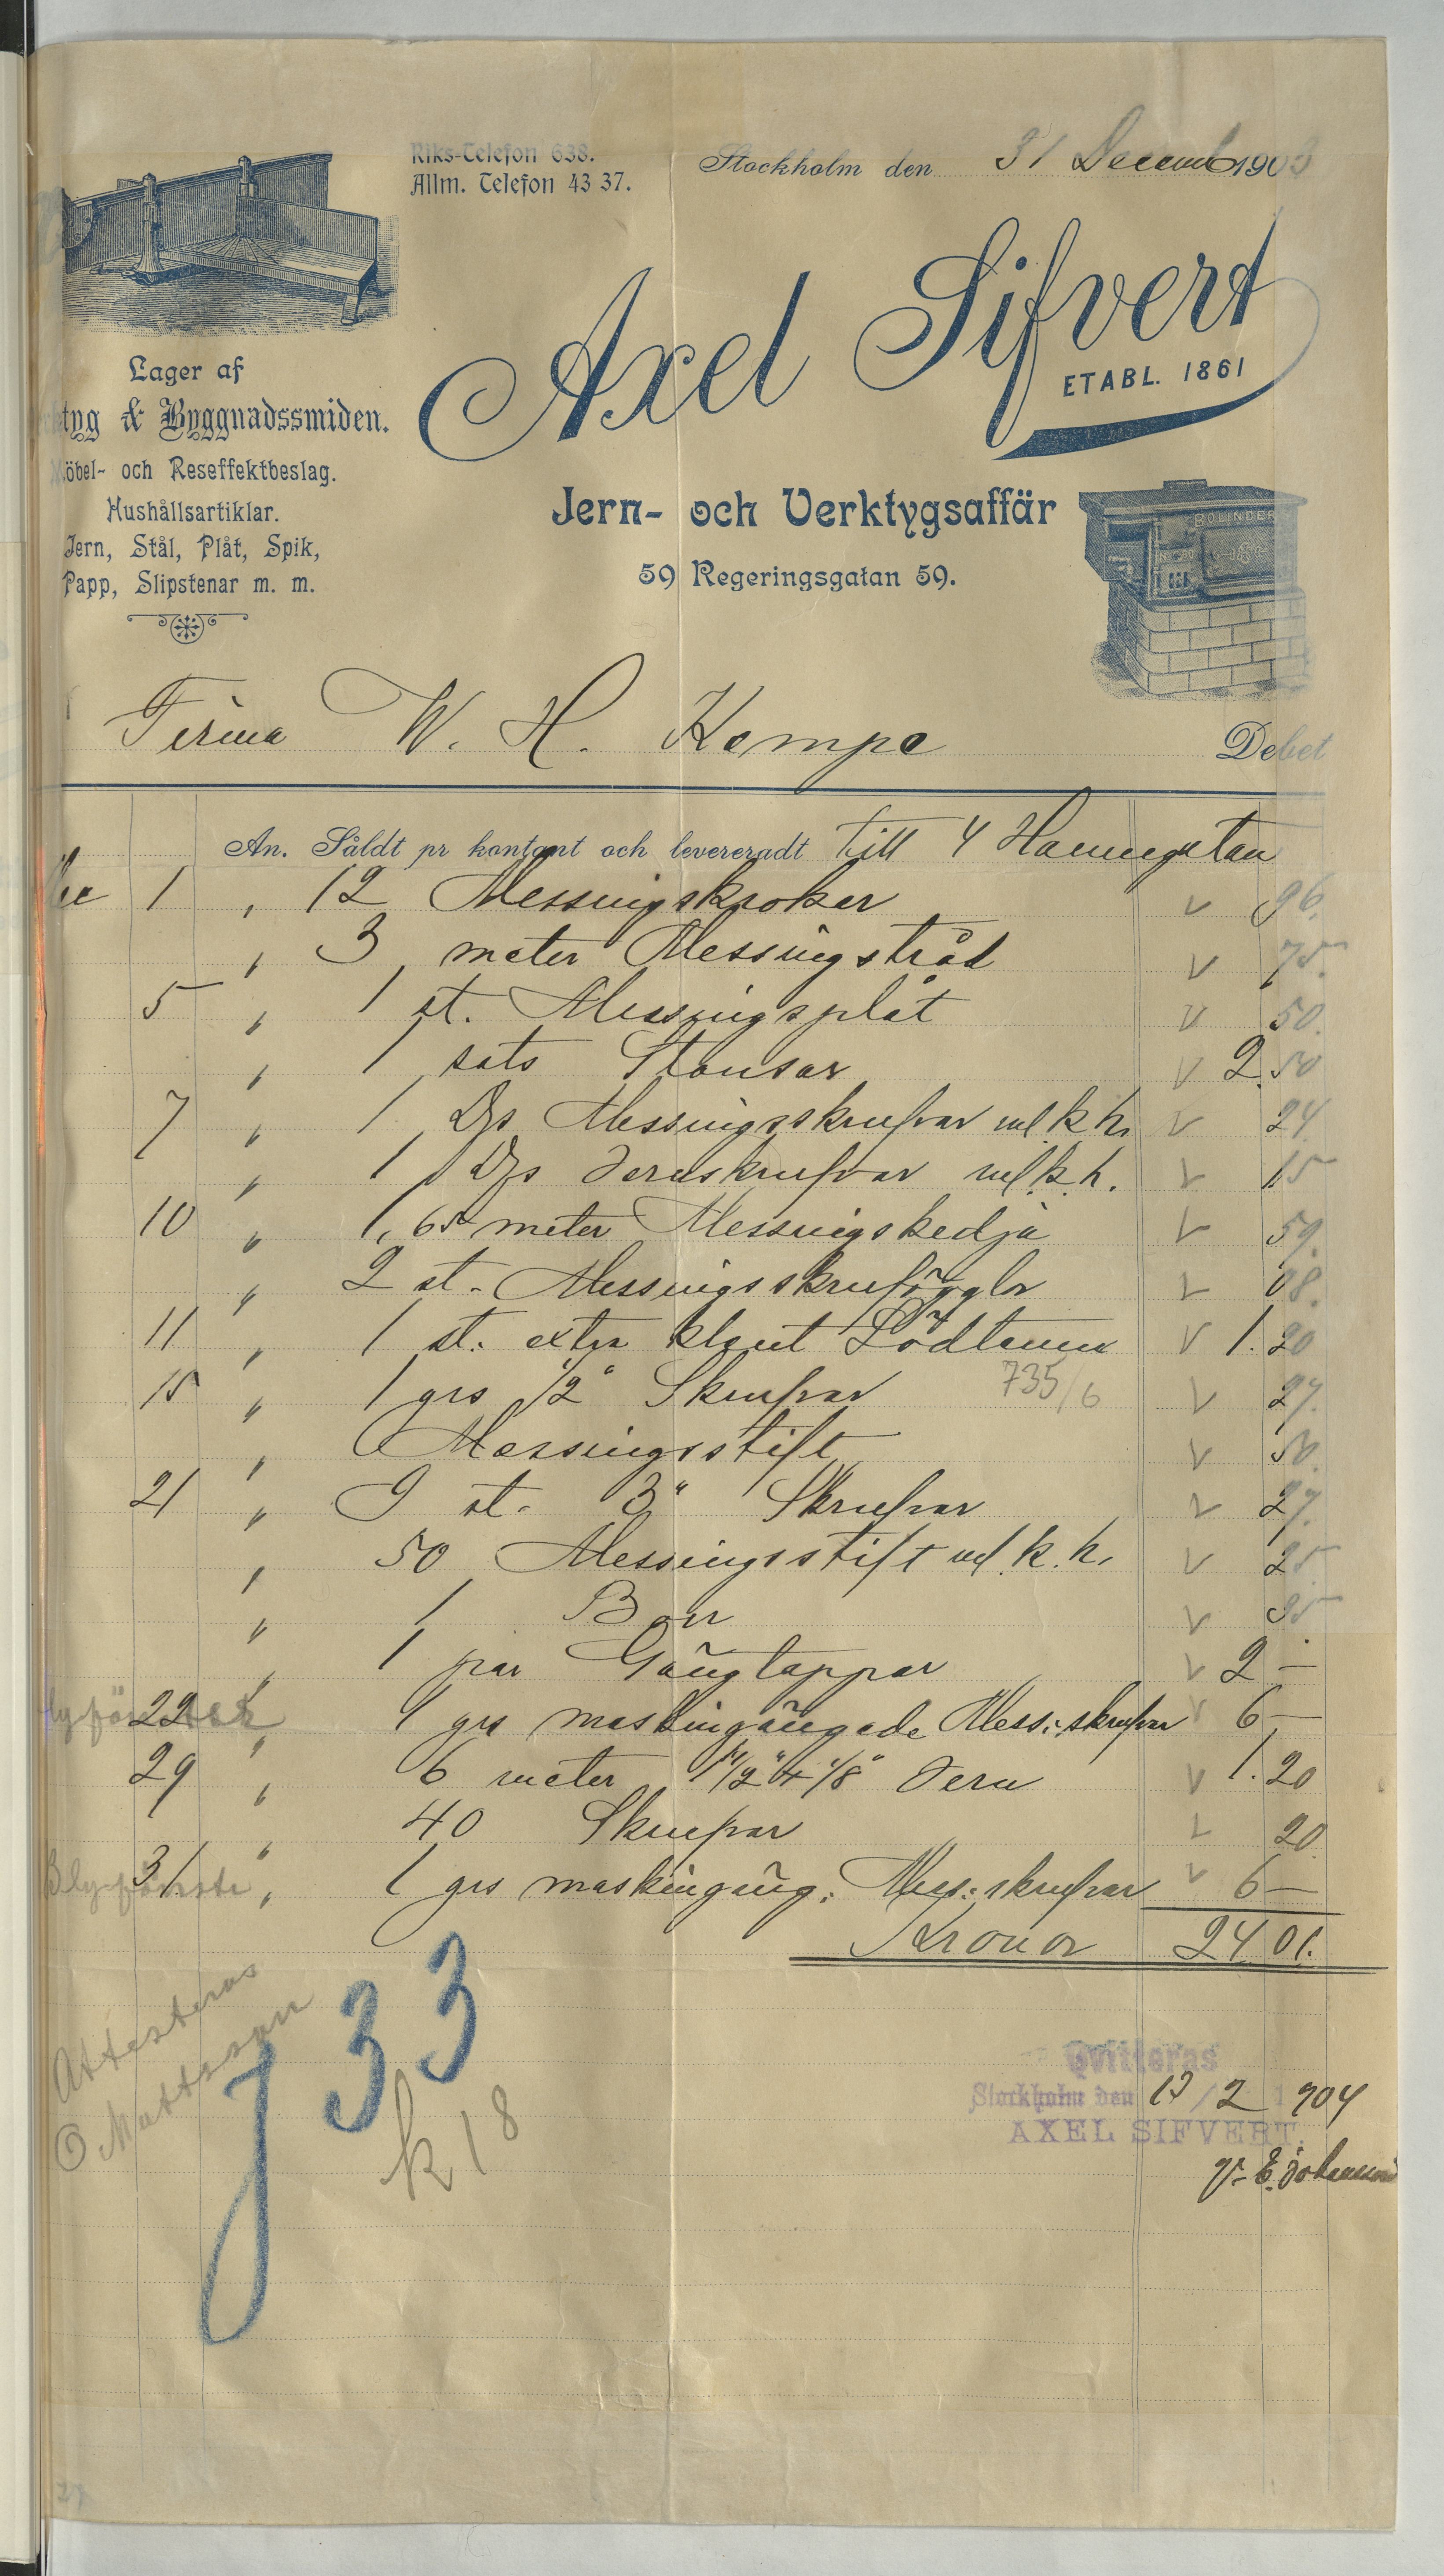 Riks-Telefon 638.
Allm. Telefon 43 37.
Stockholm den 31 Decemb 1903
Axel Sifvert
ETABL. 1861
Lager af
tyg & Byggnadssmiden.
Möbel- och Reseffektbeslag.
Hushållsartiklar.
Jern, Stål, Plåt, Spik,
Papp, Slipstenar m. m.
Jern- och Verktygsaffär
59 Regeringsgatan 59.
BOLINDER
Firma W. H. Kempe
Debet
An. Såldt pr kontant och levereradt till 4 Hamngatan
Dec 1 " 12 Messingskrokar v 96.
" 3 meter Messingstråd v 75.
5 " 1 st. Messingsplåt v 50.
" 1 sats Stansar v 2.50
7 " 1 Dzs Messingsskrufvar m k h. v 24.
" 1 Dzs Jernskrufvar m. k. h. v 15
10 " 1,65 meter Messingskedja v 59.
" 2 st. Messingsskruföglor v 08.
11 " 1 st. extra klent Lödtenn v 1.20
15 " 1 grs 1/2" Skrufvar 735/6 v 27.
" Messingsstift v 50.
21 " 9 st. 3" Skrufvar v 27.
" 50 Messingsstift m. k. h. v 25
" 1 Borr v 35
" 1 par Gängtappar v 2 —
22 " 1 grs maskingängade Mess: skrufvar v 6 —
29 " 6 meter 1 1/2" x 1/8" Jern v 1.20
" 40 Skrufvar v 20
Blyförste 31. " 1 grs maskingäng: Mess: skrufvar v 6 —
Kronor 24 01.
Attesteras
O Mattsson
J 33
k 18
Qvitteras
Stockholm den 13/2 1904
AXEL SIFVERT.
gr. E. Johansson